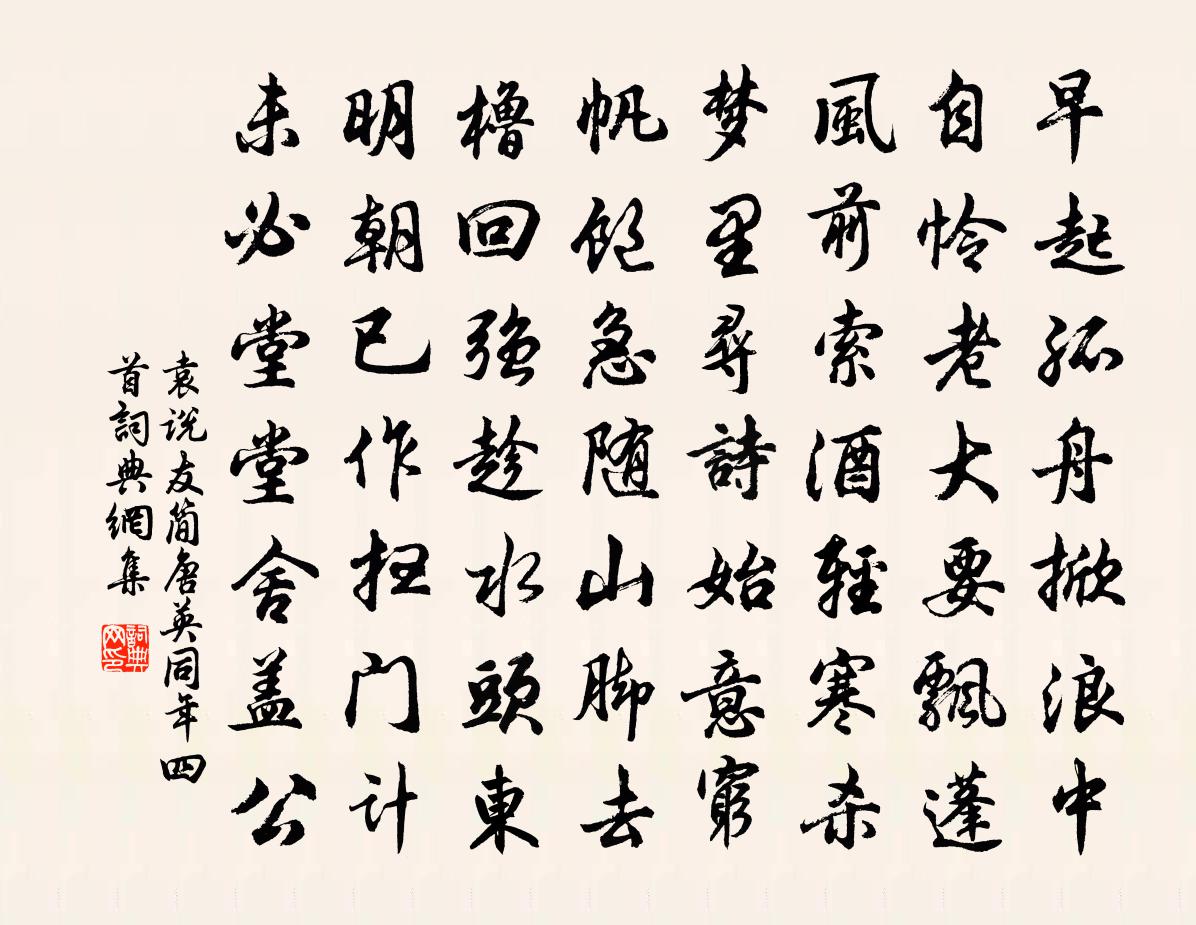 早起孤舟掀浪中
自怜老大要飄蓬
風前索酒輕寒杀
梦里尋詩始意窮
帆飽急随山脚去
櫓回強趁水頭東
明朝已作扫门计
未必堂堂舍盖公
袁说友简唐英同年四
首詞典網集
詞典网印